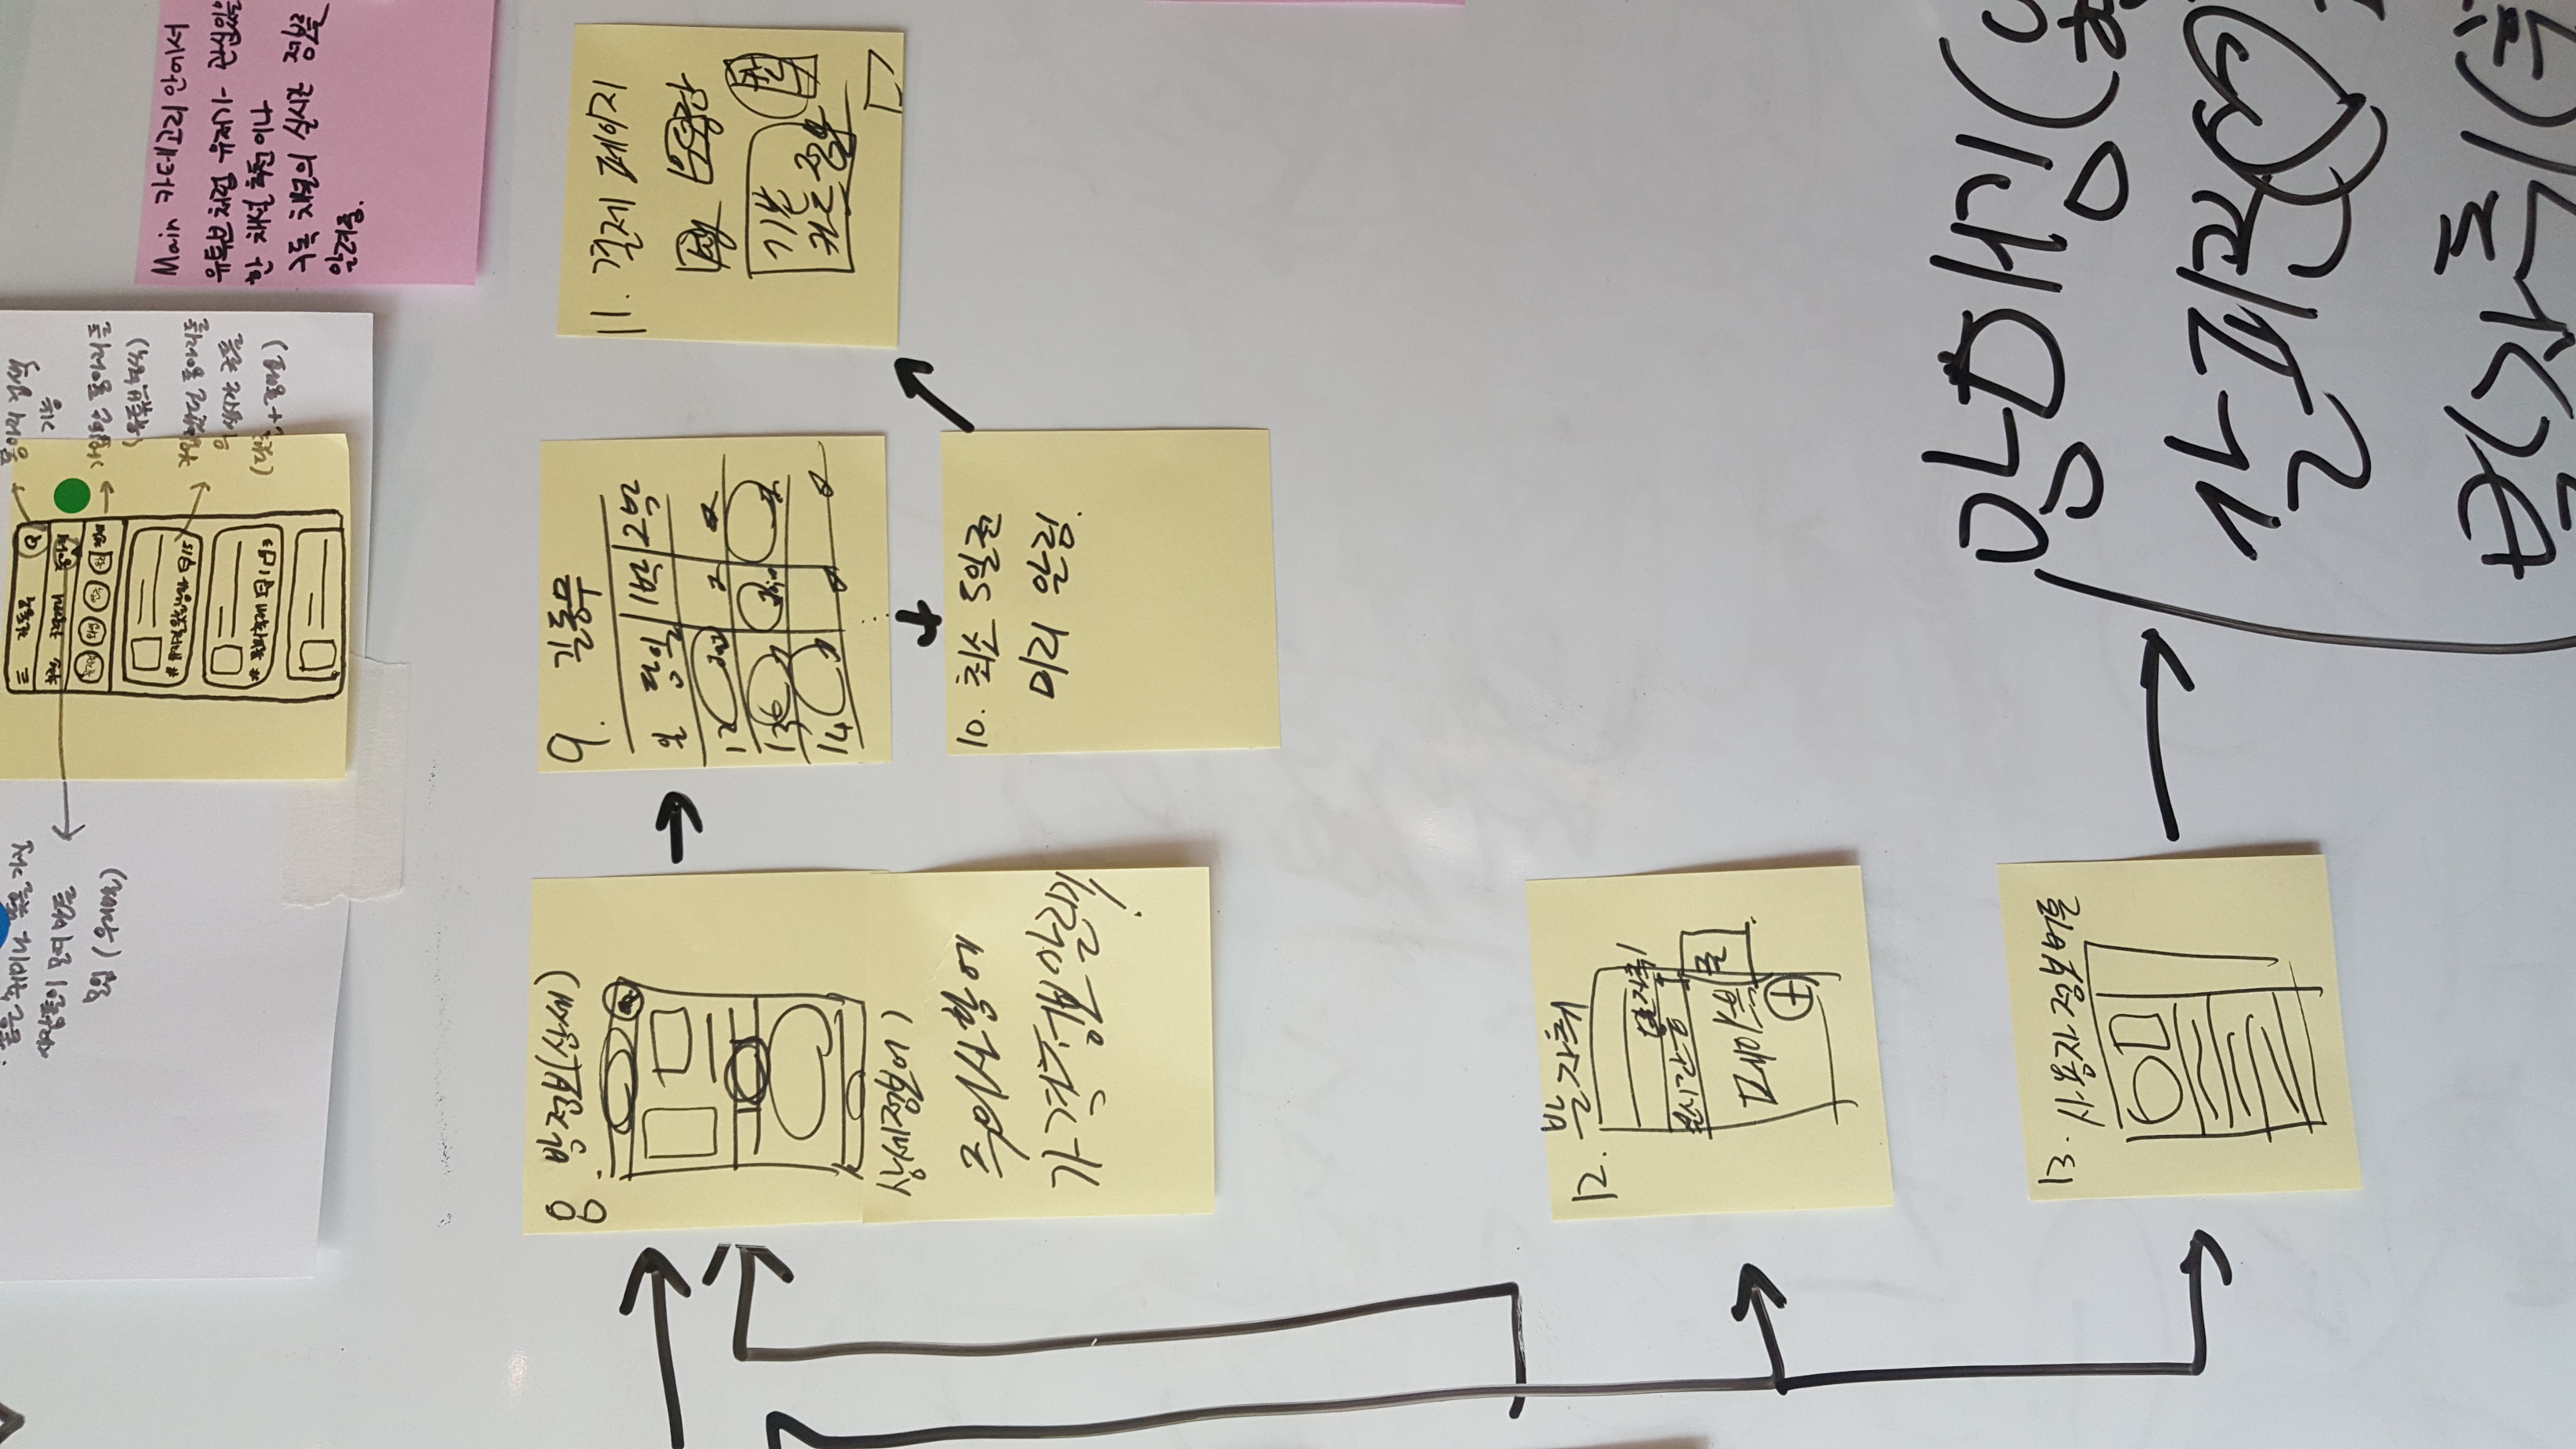 사람들이 모여 만든
모임 (우리말)
길동무
추천
동아리
동아리 검색
기능
가입한 동아리들
(유튜브형식)
가입했던 동아리들
의 실시간 글들
Main 카테고리 안에서
유튜브처럼 유저가 관심있을
한 채널 추천이나
구독 채널의 실시간 정보를
알려줌.
8. 방정보(상세)
상세정보에
주의사항에
가격정보 알리기!
9. 길동무
일 당일 1박 2박
12
13
14
10. 최소 5일전
미리 알림.
11. 결제 페이지
기본
카드 정보
12. 발자취
발자취
실시간
글
+
13. 사용자 정보 버튼
맘매칭(
살피관
발자취(